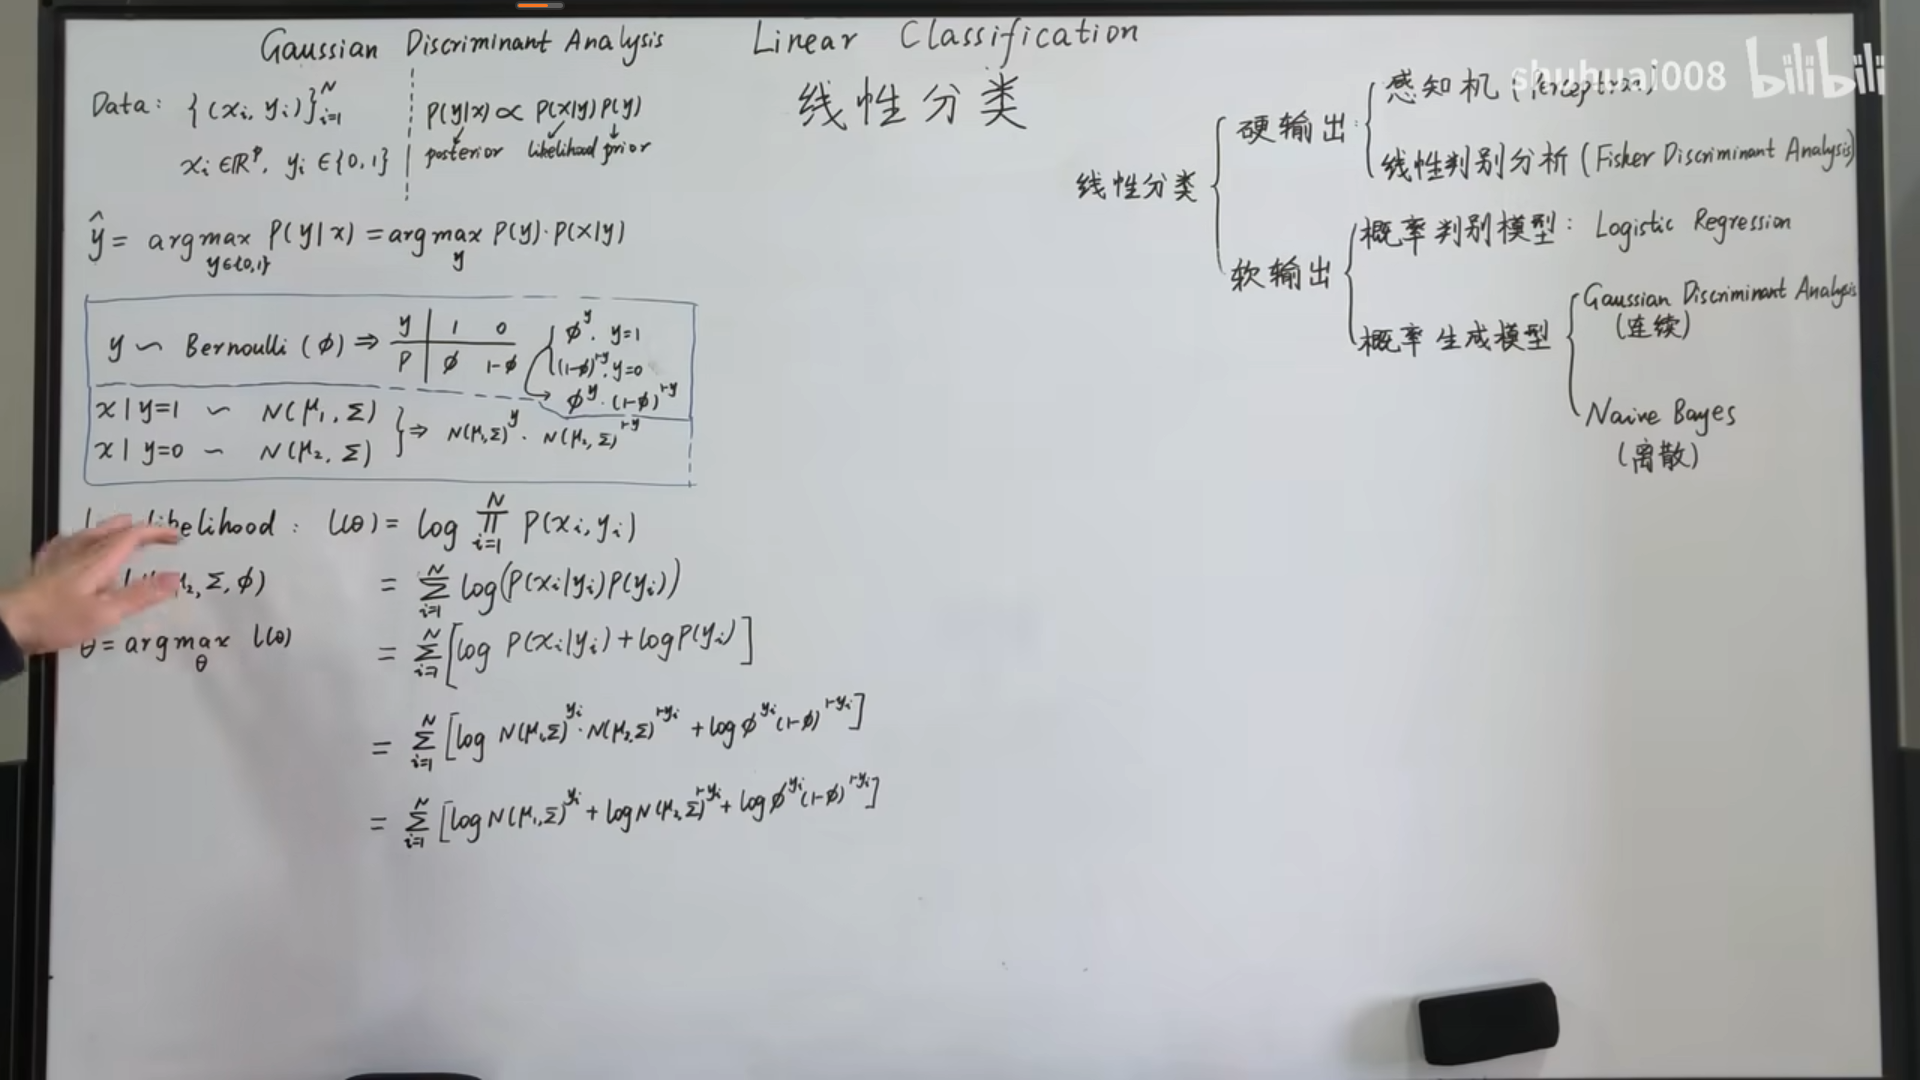 Gaussian Discriminant Analysis
Linear Classification
线性分类
Data: {(xᵢ, yᵢ)}ᵢ₌₁ᴺ
xᵢ ∈ ℝᵖ, yᵢ ∈ {0,1}
P(y|x) ∝ P(x|y) P(y)
posterior likelihood prior
ŷ = argmax_{y∈{0,1}} P(y|x) = argmax_y P(y)·P(x|y)
y ~ Bernoulli (ϕ) ⇒
y | 1 0
P | ϕ 1-ϕ
ϕ^y, y=1
(1-ϕ)^{1-y}, y=0
→ ϕ^y · (1-ϕ)^{1-y}
x | y=1 ~ N(μ₁, Σ)
x | y=0 ~ N(μ₂, Σ)
⇒ N(μ₁,Σ)^y · N(μ₂, Σ)^{1-y}
likelihood: l(θ) = log ∏ᵢ₌₁ᴺ P(xᵢ, yᵢ)
μ₂, Σ, ϕ)
= Σᵢ₌₁ᴺ log(P(xᵢ|yᵢ)P(yᵢ))
θ = argmax_θ l(θ)
= Σᵢ₌₁ᴺ [log P(xᵢ|yᵢ) + log P(yᵢ)]
= Σᵢ₌₁ᴺ [log N(μ₁,Σ)^{yᵢ} · N(μ₂,Σ)^{1-yᵢ} + log ϕ^{yᵢ} (1-ϕ)^{1-yᵢ}]
= Σᵢ₌₁ᴺ [log N(μ₁,Σ)^{yᵢ} + log N(μ₂,Σ)^{1-yᵢ} + log ϕ^{yᵢ} (1-ϕ)^{1-yᵢ}]
线性分类
硬输出:
感知机 (Perceptron)
线性判别分析 (Fisher Discriminant Analysis)
软输出
概率判别模型: Logistic Regression
概率生成模型
Gaussian Discriminant Analysis
(连续)
Naive Bayes
(离散)
shuhuai008 bilibili